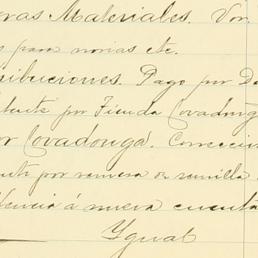 ras Materiales. Vor
s para norias etc.
ribuciones. Pago por De
por Tienda Covadong
or Covadonga. Correcci
por remesa de semilla
tencia á nueva cuenta
Ygual